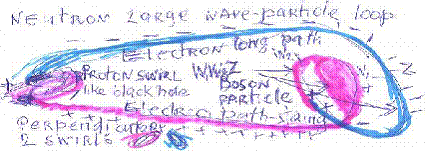 NEUTRON LARGE WAVE-PARTICLE LOOP
Electron long path
PROTON SWIRL W,W,Z
like black hole BOSON
PARTICLE
Electro path
Perpendi
2 SWIRLS
Z